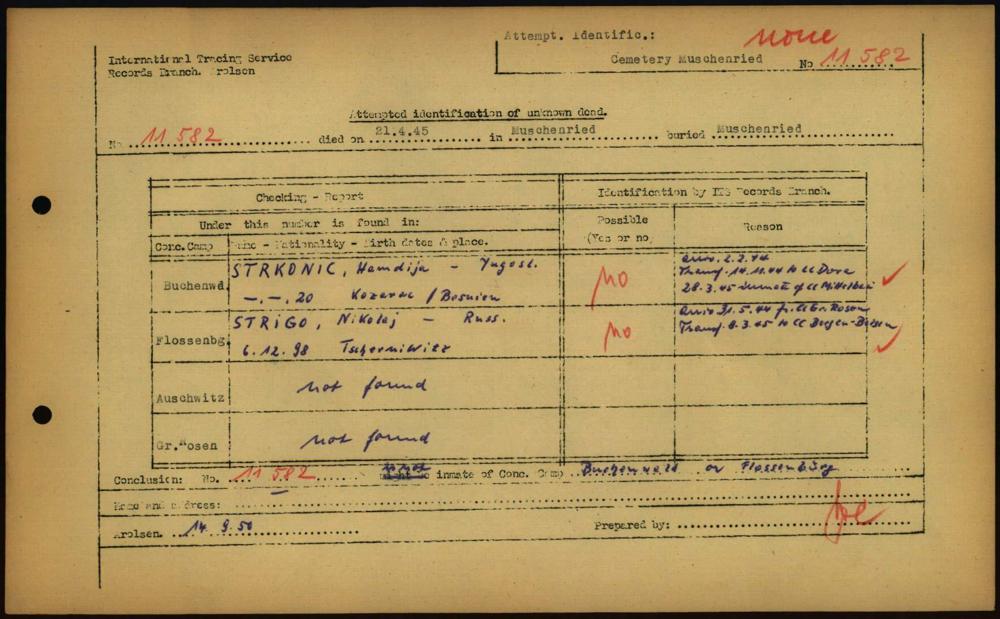 Attempt. Identific.: none
International Tracing Service
Records Branch. Arolsen
Cemetery Muschenried No 11 582
Attempted identification of unknown dead.
No. 11 582 died on 21.4.45 in Muschenried buried Muschenried
Checking - Report
Identification by ITS Records Branch.
Under this number is found in:
Possible
(Yes or no)
Reason
Conc. Camp
Name - Nationality - Birth dates & place.
Buchenwd.
STRKONIC, Hamdija - Yugosl.
-.-.20 Kozarac / Bosnien
No
arriv. 2.2.44
Transf. 14.11.44 to CC Dora
28.3.45 inmate of CC Mittelbau
Flossenbg.
STRIGO, Nikolaj - Russ.
6.12.98 Tscherniwitz
No
arriv 31.5.44 fr. CC Gr. Rosen
Transf. 8.3.45 to CC Bergen-Belsen
Auschwitz
not found
Gr. Rosen
not found
Conclusion: No. 11 582 is not inmate of Conc. Camp Buchenwald or Flossenbürg
Name and address:
Arolsen. 14. 9. 50
Prepared by: